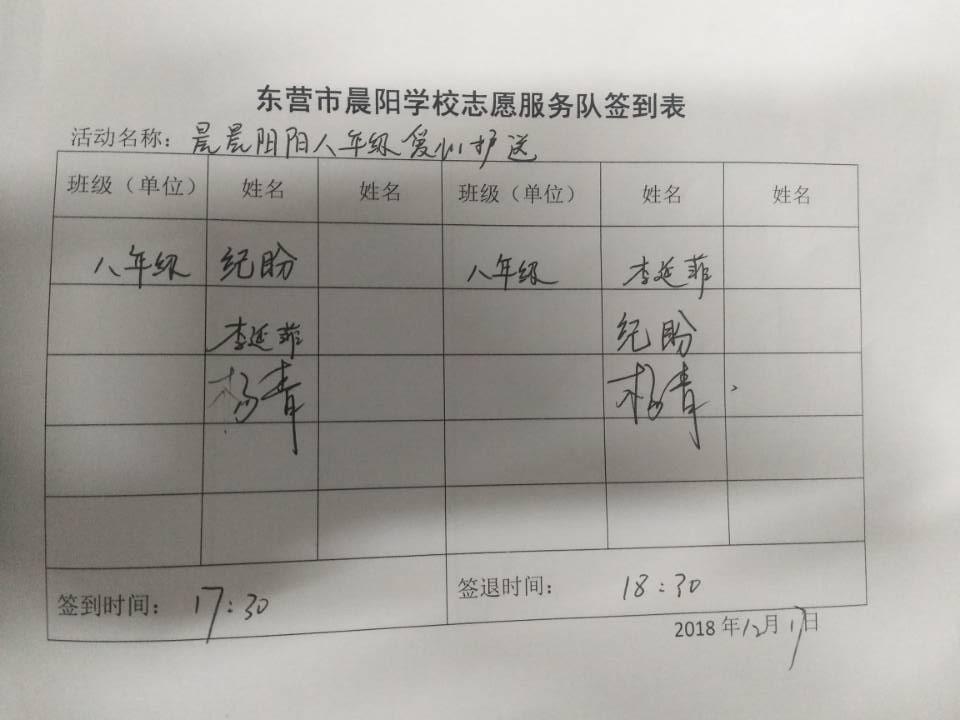 东营市晨阳学校志愿服务队签到表
活动名称：晨晨阳阳八年级爱心护送
班级（单位） 姓名 姓名 班级（单位） 姓名 姓名
八年级 纪盼 八年级 李延菲
李延菲 纪盼
杨青 杨青
签到时间： 17:30 签退时间： 18:30
2018年12月17日